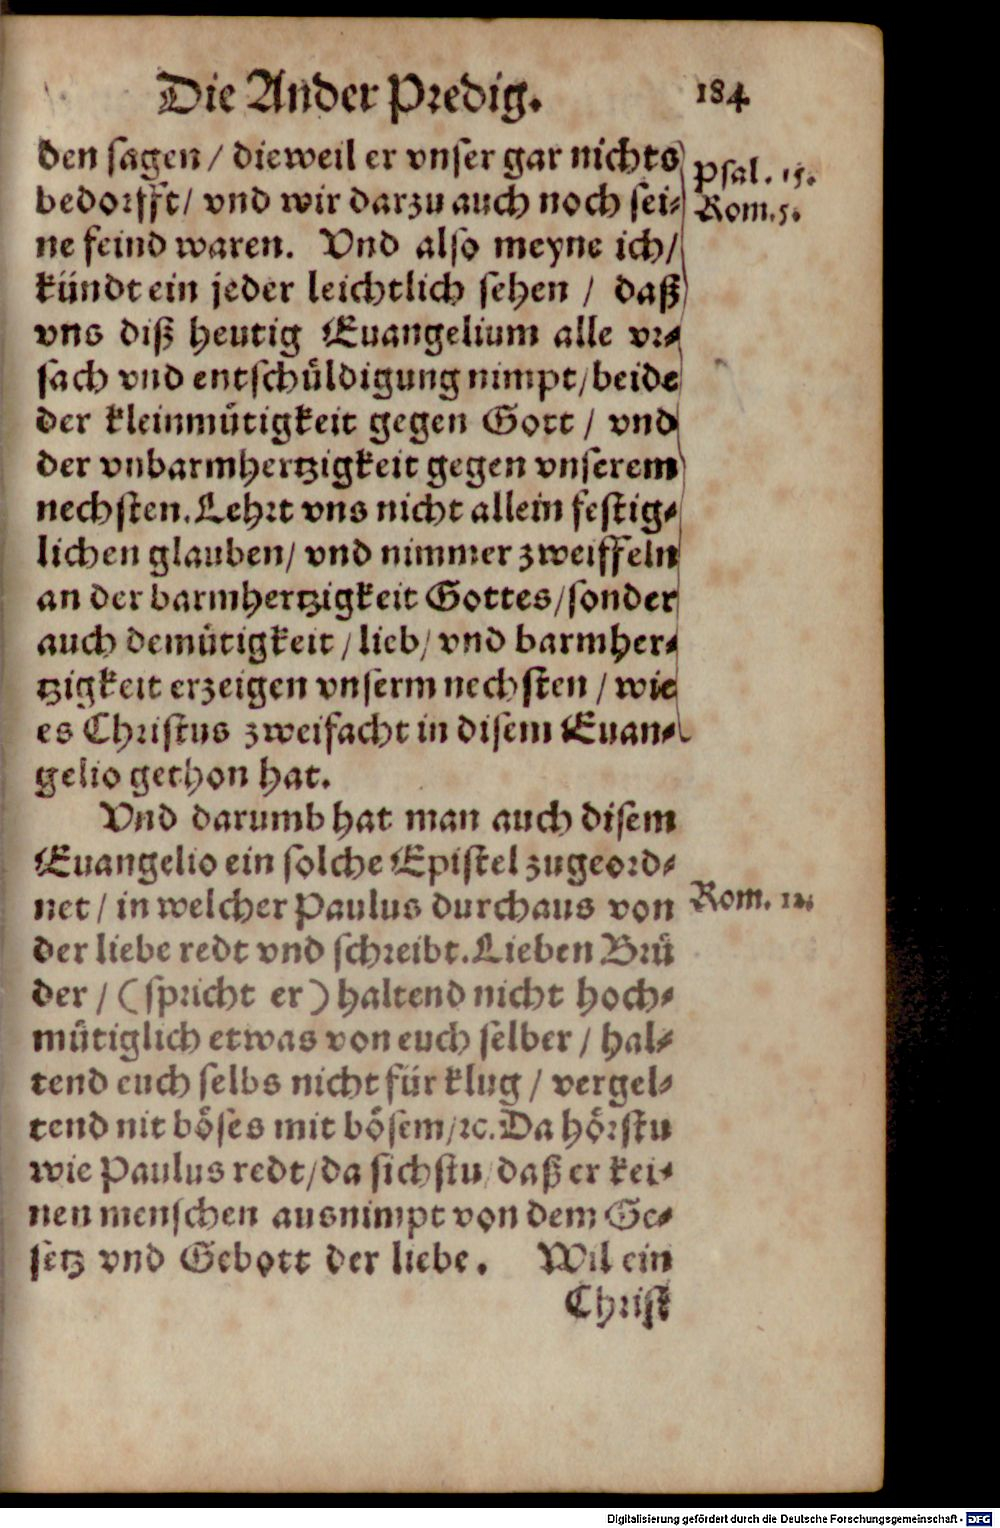 Die Ander Predig. 184
den sagen / dieweil er vnser gar nichts
bedorfft / vnd wir darzu auch noch sei-
ne feind waren. Vnd also meyne ich /
kündt ein jeder leichtlich sehen / daß
vns diß heutig Euangelium alle vr-
sach vnd entschůldigung nimpt / beide
der kleinmůtigkeit gegen Gott / vnd
der vnbarmhertzigkeit gegen vnserem
nechsten. Lehrt vns nicht allein festig-
lichen glauben / vnd nimmer zweiffeln
an der barmhertzigkeit Gottes / sonder
auch demůtigkeit / lieb / vnd barmher-
tzigkeit erzeigen vnserm nechsten / wie
es Christus zweifacht in disem Euan-
gelio gethon hat.
Psal. 15.
Rom. 5.
Vnd darumb hat man auch disem
Euangelio ein solche Epistel zugeord-
net / in welcher Paulus durchaus von
der liebe redt vnd schreibt. Lieben Brů
der / (spricht er) haltend nicht hoch-
můtiglich etwas von euch selber / hal-
tend euch selbs nicht für klug / vergel-
tend nit böses mit bösem / ꝛc. Da hörstu
wie Paulus redt / da sichstu / daß er kei-
nen menschen ausnimpt von dem Ge-
setz vnd Gebott der liebe. Wil ein
Christ
Rom. 12.
Digitalisierung gefördert durch die Deutsche Forschungsgemeinschaft - DFG